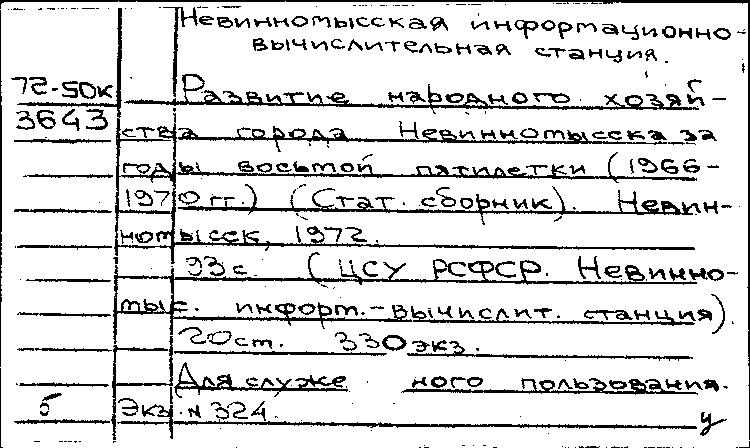 Невинномысская информационно-
вычислительная станция.
72-50к Развитие народного хозяй-
3643 ства города Невинномысска за
годы восьмой пятилетки (1966-
1970 гг.) (Стат. сборник). Невин-
номысск, 1972.
93 с. (ЦСУ РСФСР. Невинно-
мыс. информ.-вычислит. станция).
20 см. 330 экз.
Для служебного пользования.
б Экз. N 324. у